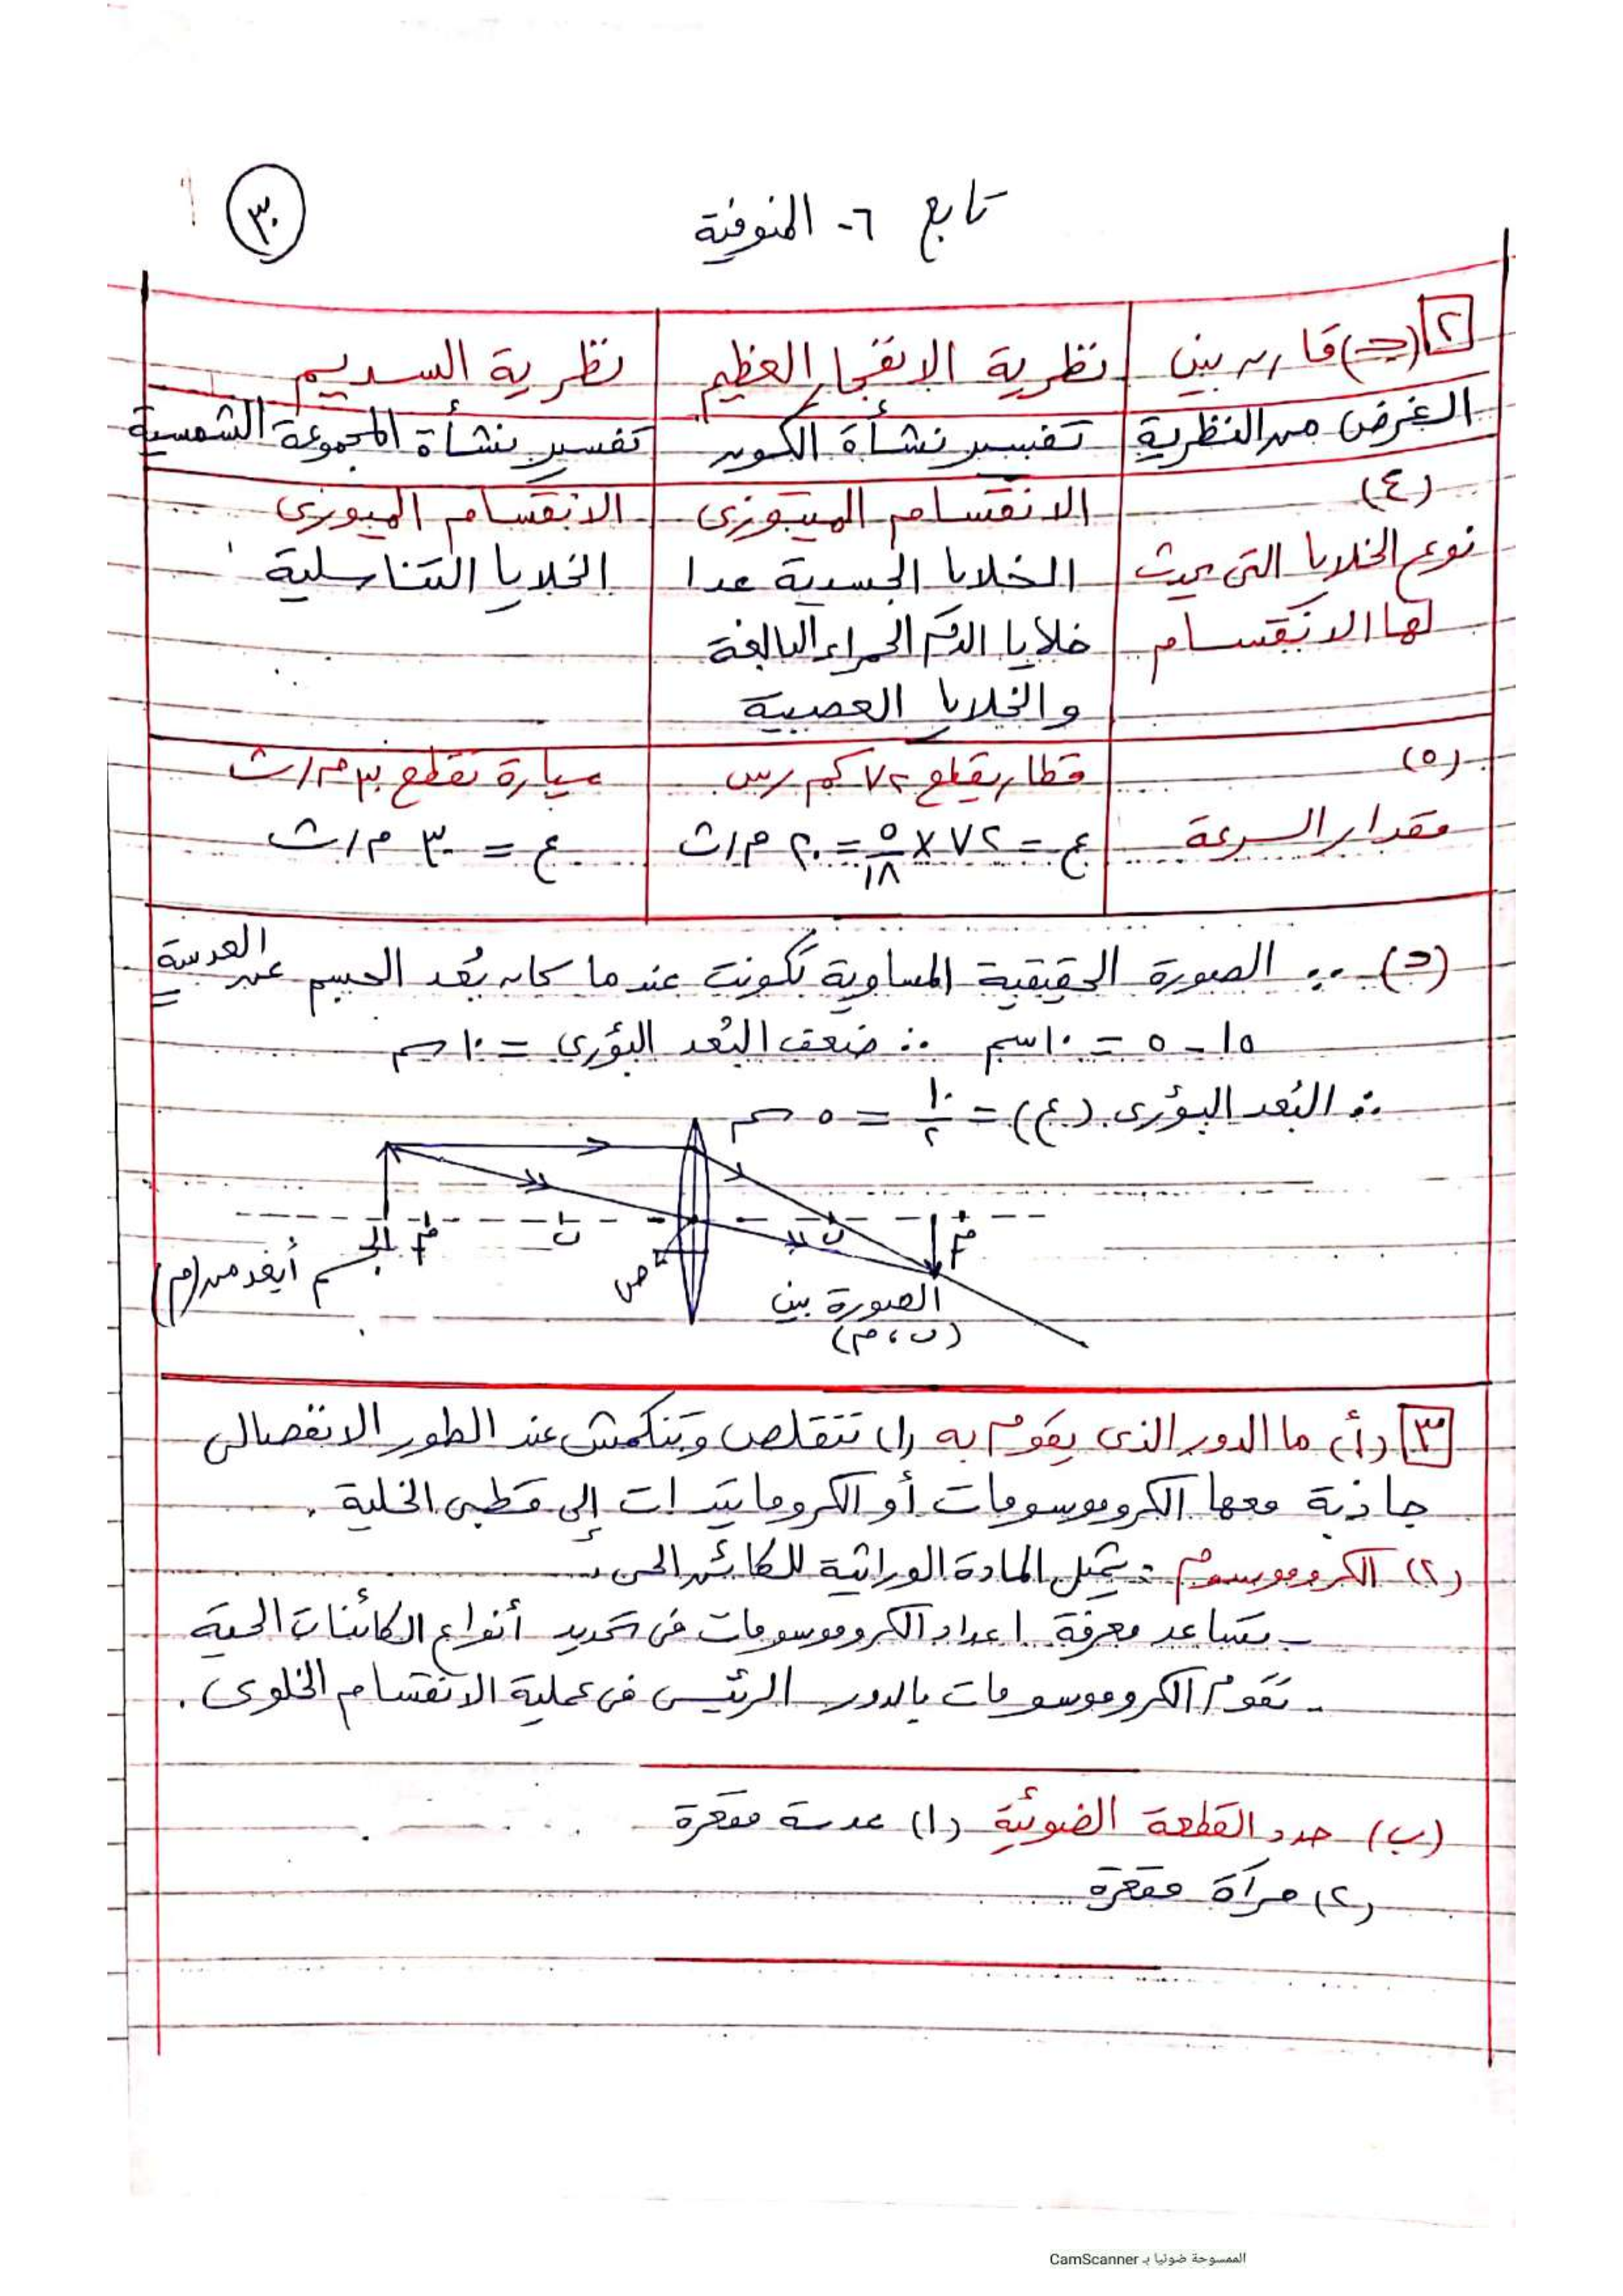 تابع ٦- المنوفية
٣٠
٢ (جـ) قارن بين | نظرية الانفجار العظيم | نظرية السديم
الغرض من النظرية | تفسير نشأة الكون | تفسير نشأة المجموعة الشمسية
(٤) | الانقسام الميتوزى | الانقسام الميوزى
نوع الخلايا التى يحدث | الخلايا الجسدية عدا | الخلايا التناسلية
لها الانقسام | خلايا الدم الحمراء البالغة
والخلايا العصبية
(٥) | قطار يقطع ٧٢ كم/س | سيارة تقطع ٣٠ م/ث
مقدار السرعة | ع = ٧٢ × ٥/١٨ = ٢٠ م/ث | ع = ٣٠ م/ث
(د) ∵ الصورة الحقيقية المساوية تكونت عندما كان بُعد الجسم عن العدسة
١٥ - ٥ = ١٠ سم ∴ ضعف البُعد البؤرى = ١٠ سم
∴ البُعد البؤرى (ع) = ١٠/٢ = ٥ سم
م ں ں م
الجسم أبعد من (م)
ص
الصورة بين
(ں ، م)
٣ (أ) ما الدور الذى يقوم به (١) تتقلص وتنكمش عند الطور الانفصالى
جاذبة معها الكروموسومات أو الكروماتيدات إلى قطبى الخلية .
(٢) الكروموسوم : يمثل المادة الوراثية للكائن الحى .
- تساعد معرفة اعداد الكروموسومات فى تحديد أنواع الكائنات الحية
- تقوم الكروموسومات بالدور الرئيسى فى عملية الانقسام الخلوى .
(ب) حدد القطعة الضوئية (١) عدسة مقعرة
(٢) مرآة مقعرة
الممسوحة ضوئيا بـ CamScanner